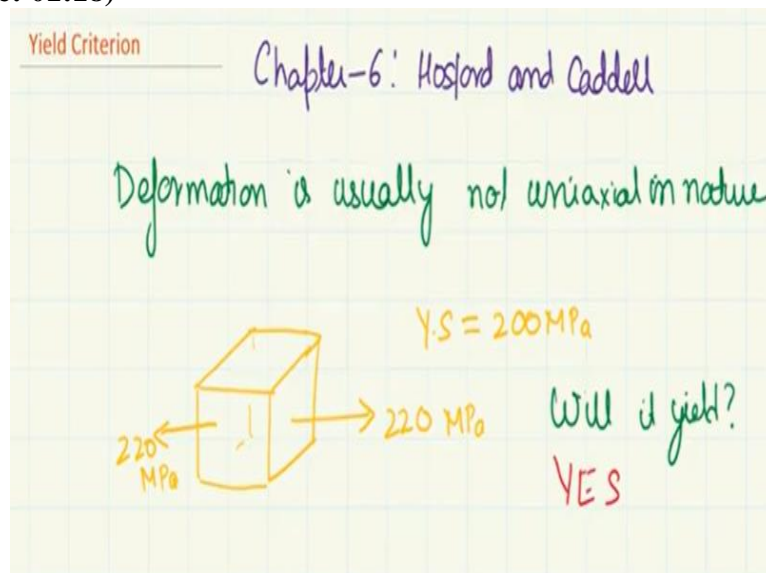 Yield Criterion
Chapter-6: Hosford and Caddell
Deformation is usually not uniaxial in nature
Y.S = 200 MPa
220 MPa
220 MPa
Will it yield?
YES